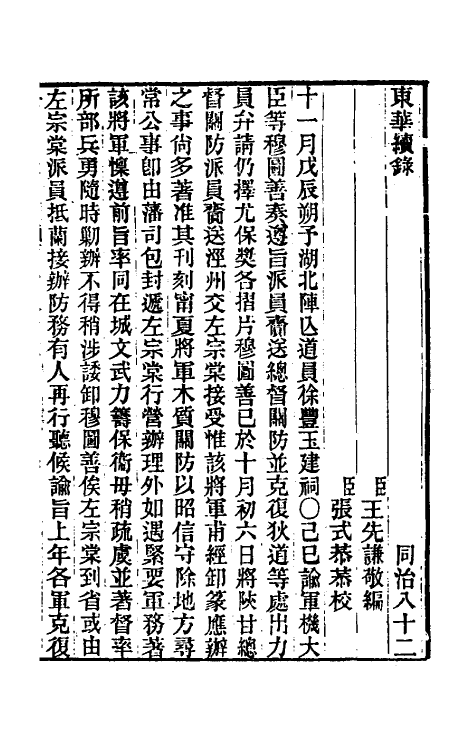 東華續錄　同治八十二
臣王先謙敬編
臣張式恭恭校
十一月戊辰朔予湖北陣亾道員徐豐玉建祠○己巳諭軍機大
臣等穆圖善奏遵旨派員齎送總督關防並克復狄道等處出力
員弁請仍擇尤保奬各摺片穆圖善已於十月初六日將陝甘總
督關防派員齎送涇州交左宗棠接受惟該將軍甫經卸篆應辦
之事尙多著准其刊刻甯夏將軍木質關防以昭信守除地方尋
常公事卽由藩司包封遞左宗棠行營辦理外如遇緊要軍務著
該將軍懍遵前旨率同在城文武力籌保衞毋稍疏虞並著督率
所部兵勇隨時勦辦不得稍涉諉卸穆圖善俟左宗棠到省或由
左宗棠派員抵蘭接辦防務有人再行聽候諭旨上年各軍克復